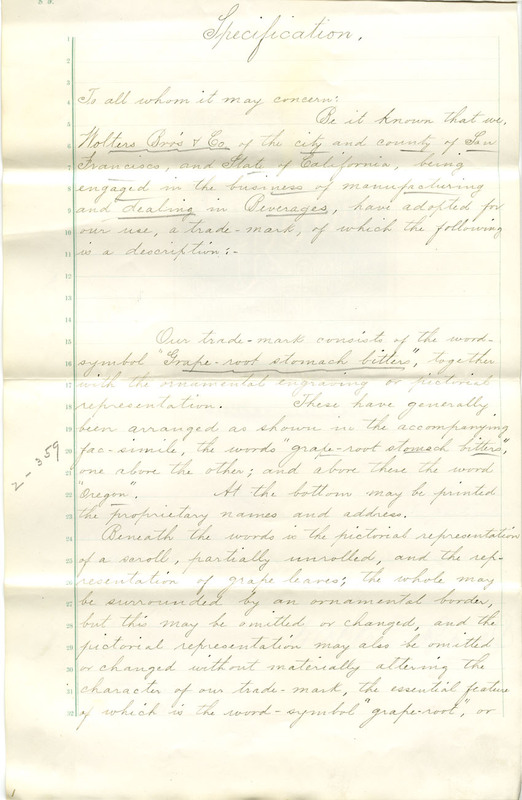 Specification.
To all whom it may concern:
Be it known that we,
Wolters Bro's & Co. of the city and county of San
Francisco, and State of California, being
engaged in the business of manufacturing
and dealing in Beverages, have adopted for
our use, a trade-mark, of which the following
is a description:-
Our trade-mark consists of the word-
symbol "Grape-root stomach bitters", together
with the ornamental engraving or pictorial
representation. These have generally
been arranged as shown in the accompanying
fac-simile, the words "grape-root stomach bitters",
one above the other; and above these the word
"Oregon". At the bottom may be printed
the proprietary names and address.
Beneath the words is the pictorial representation
of a scroll, partially unrolled, and the rep-
resentation of grape leaves; the whole may
be surrounded by an ornamental border,
but this may be omitted or changed, and the
pictorial representation may also be omitted
or changed without materially altering the
character of our trade-mark, the essential feature
of which is the word-symbol "grape-root", or
2-359